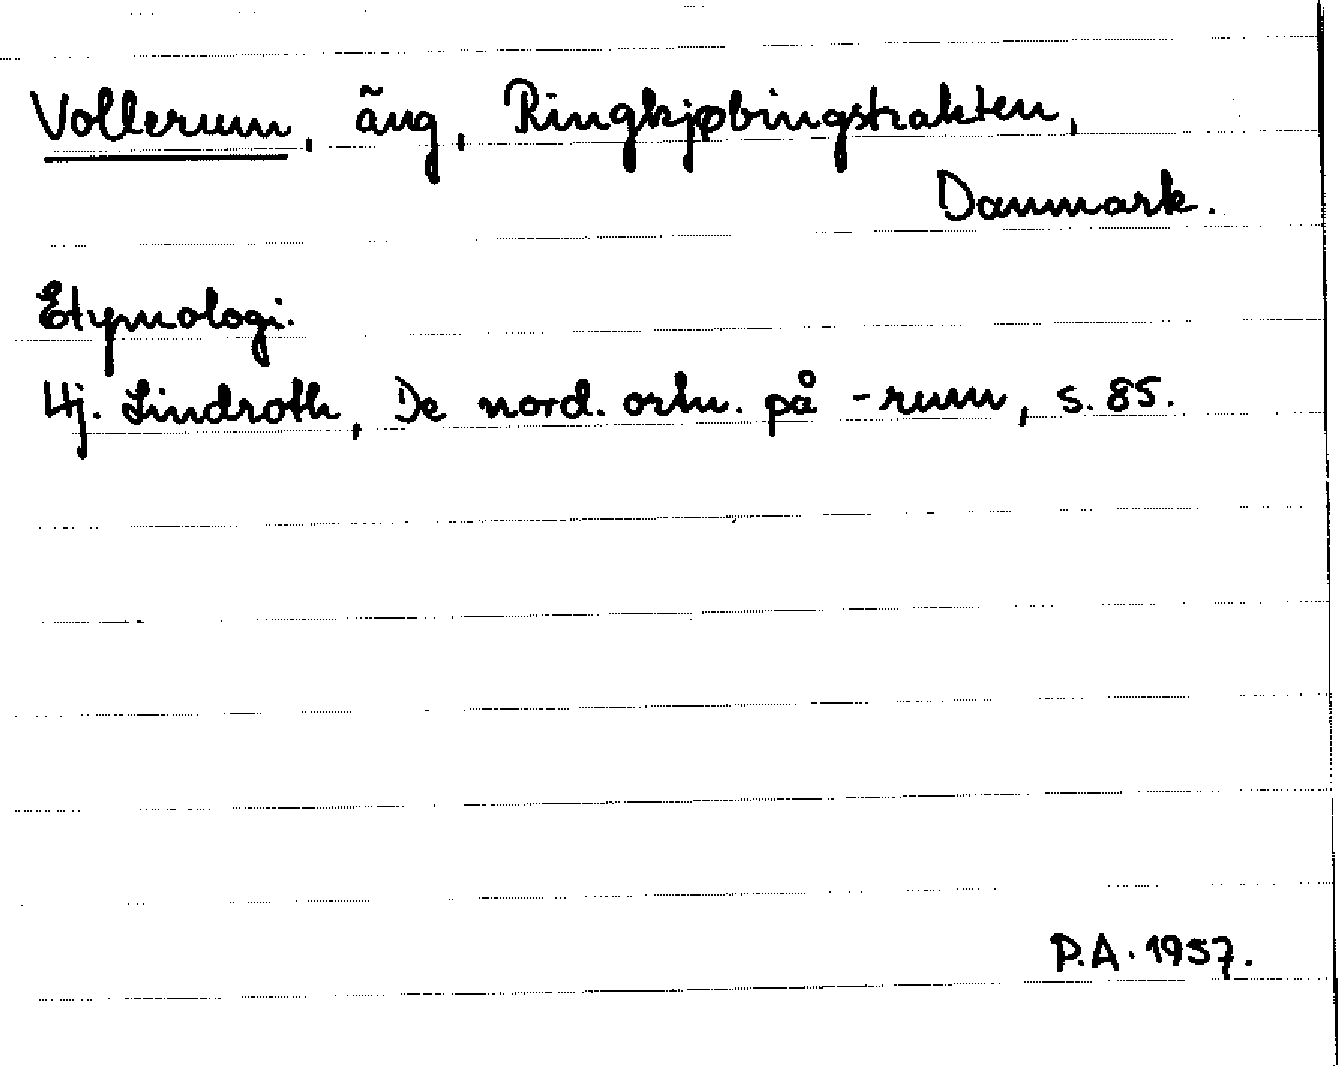 Vollerum, äng, Ringkjøbingstrakten,
Danmark.
Etymologi.
Hj. Lindroth, De nord. ortn. på -rum, s. 85.
P.A. 1957.